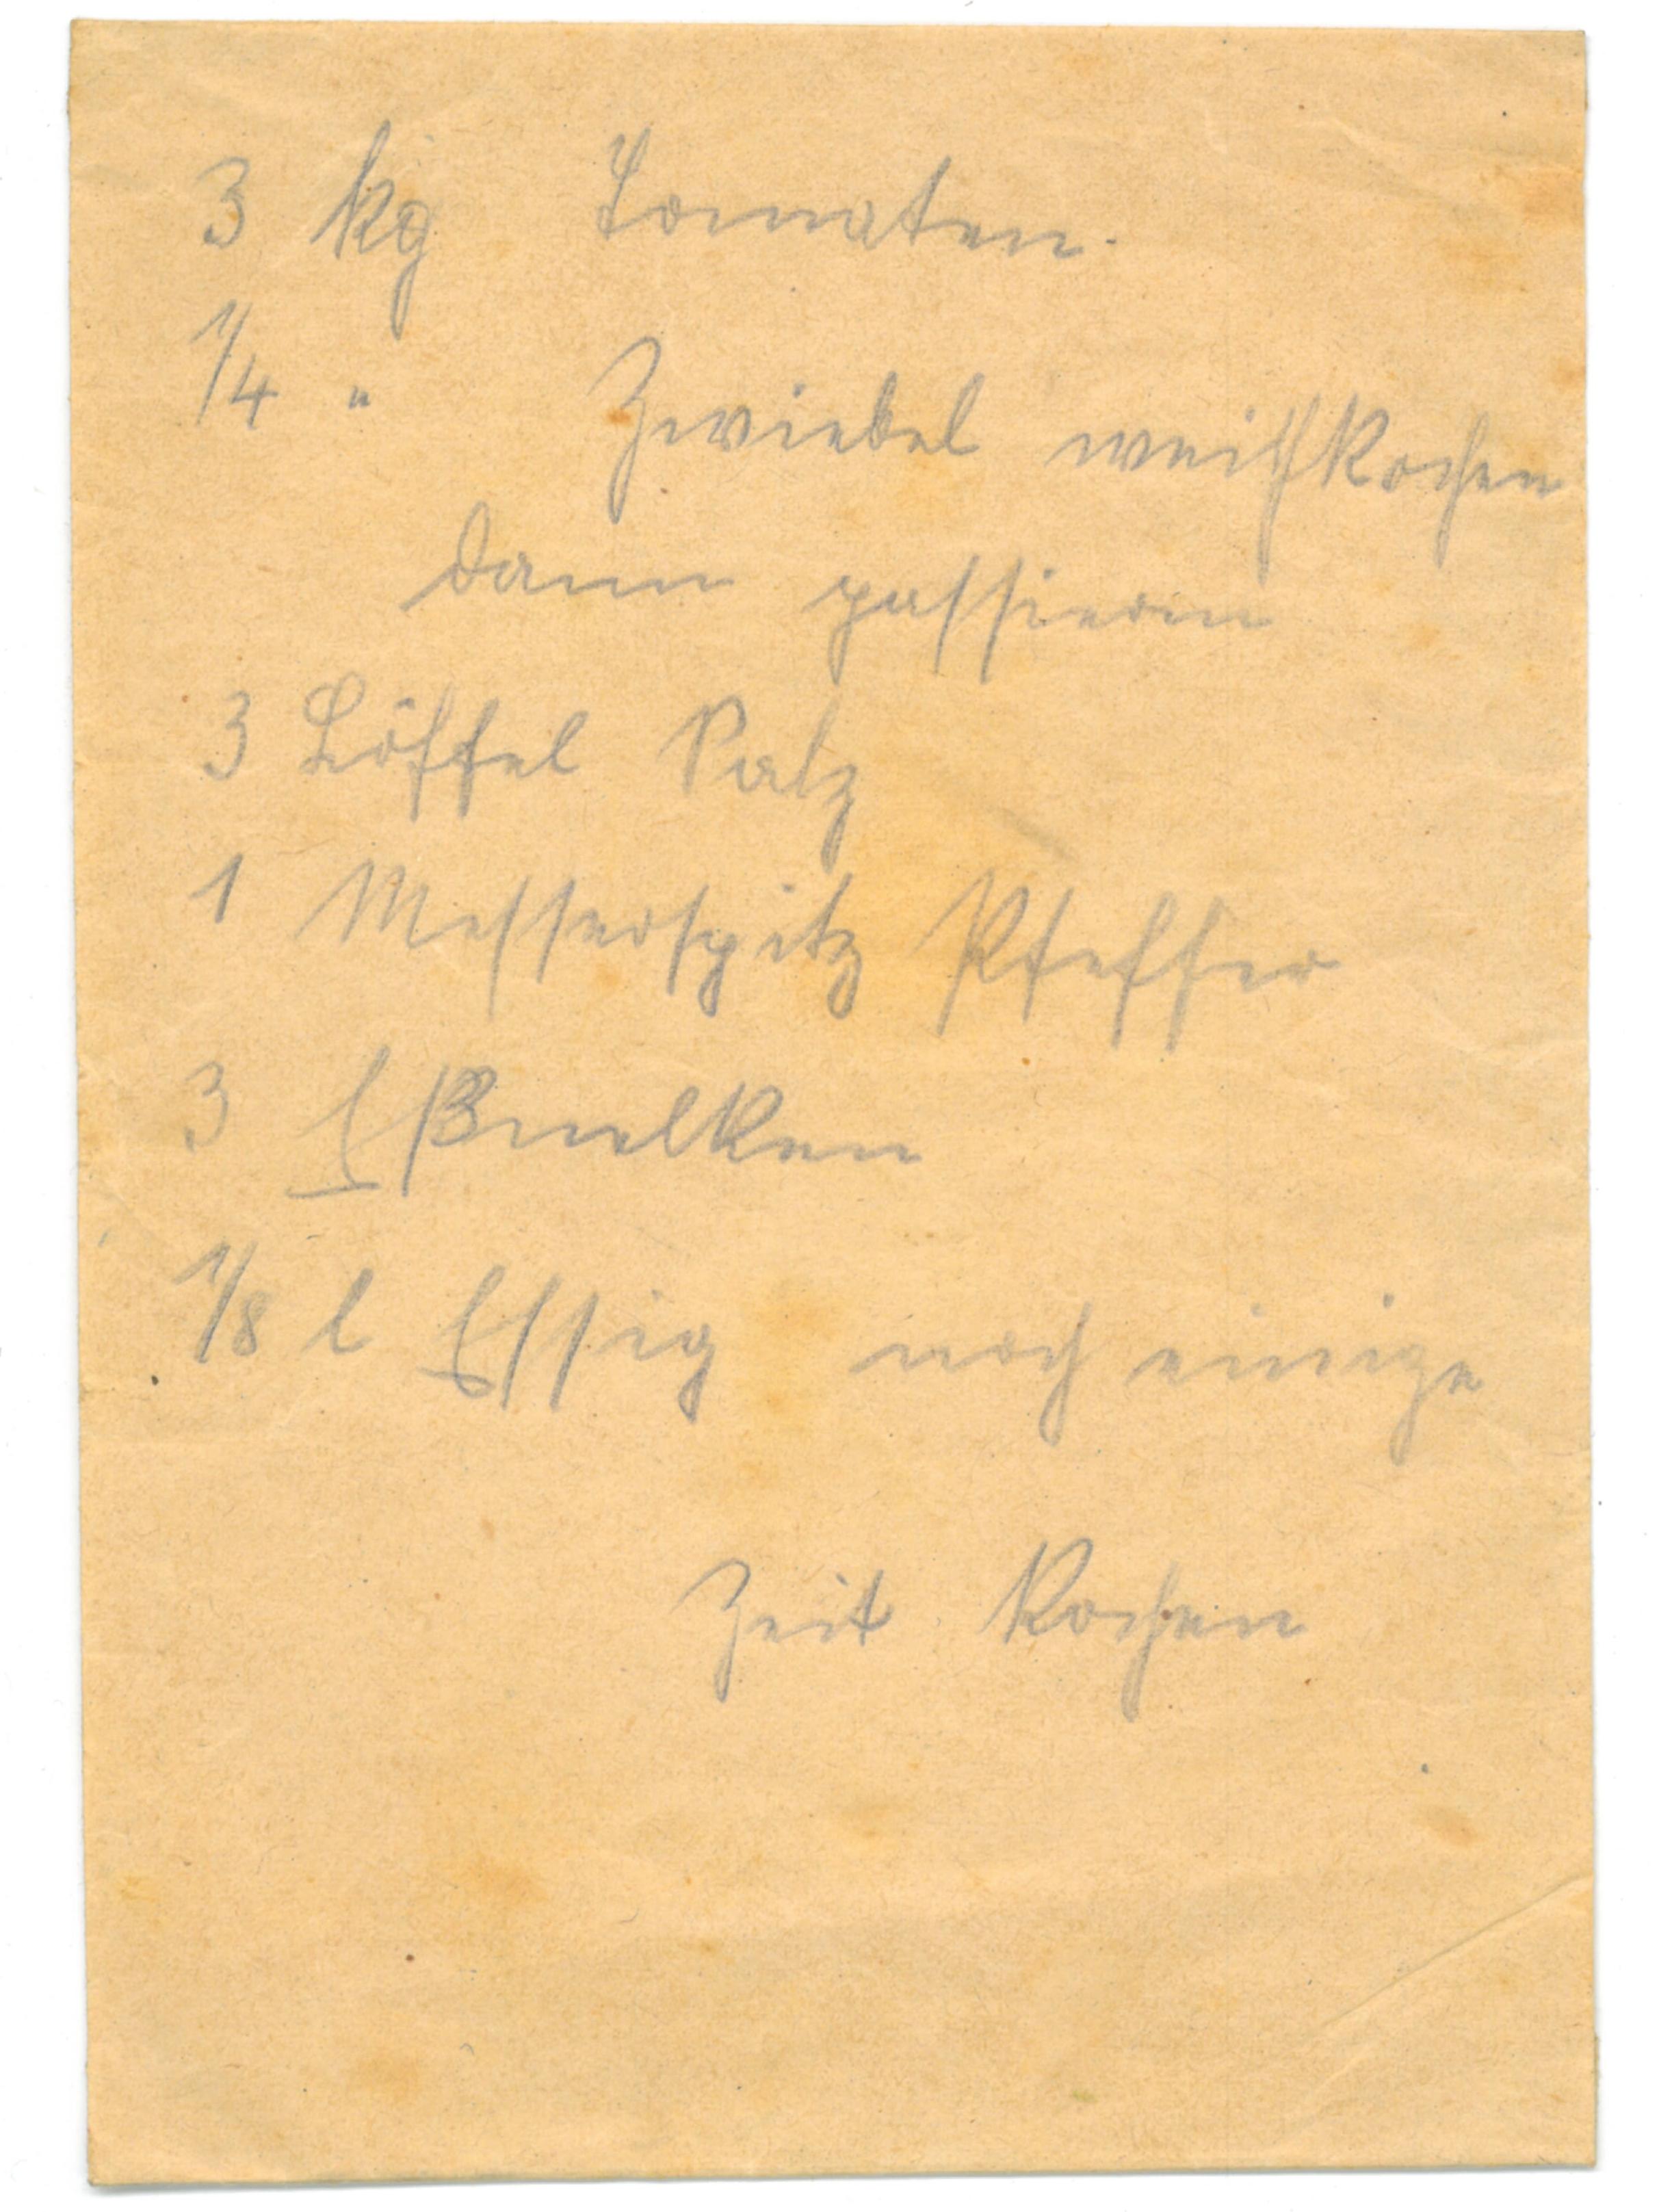 3 kg Tomaten.
1/4 " Zwiebel weichkochen
dann passieren
3 Löffel Salz
1 Messerspitz Pfeffer
3 Eßnelken
1/8 l Essig noch einige
Zeit kochen